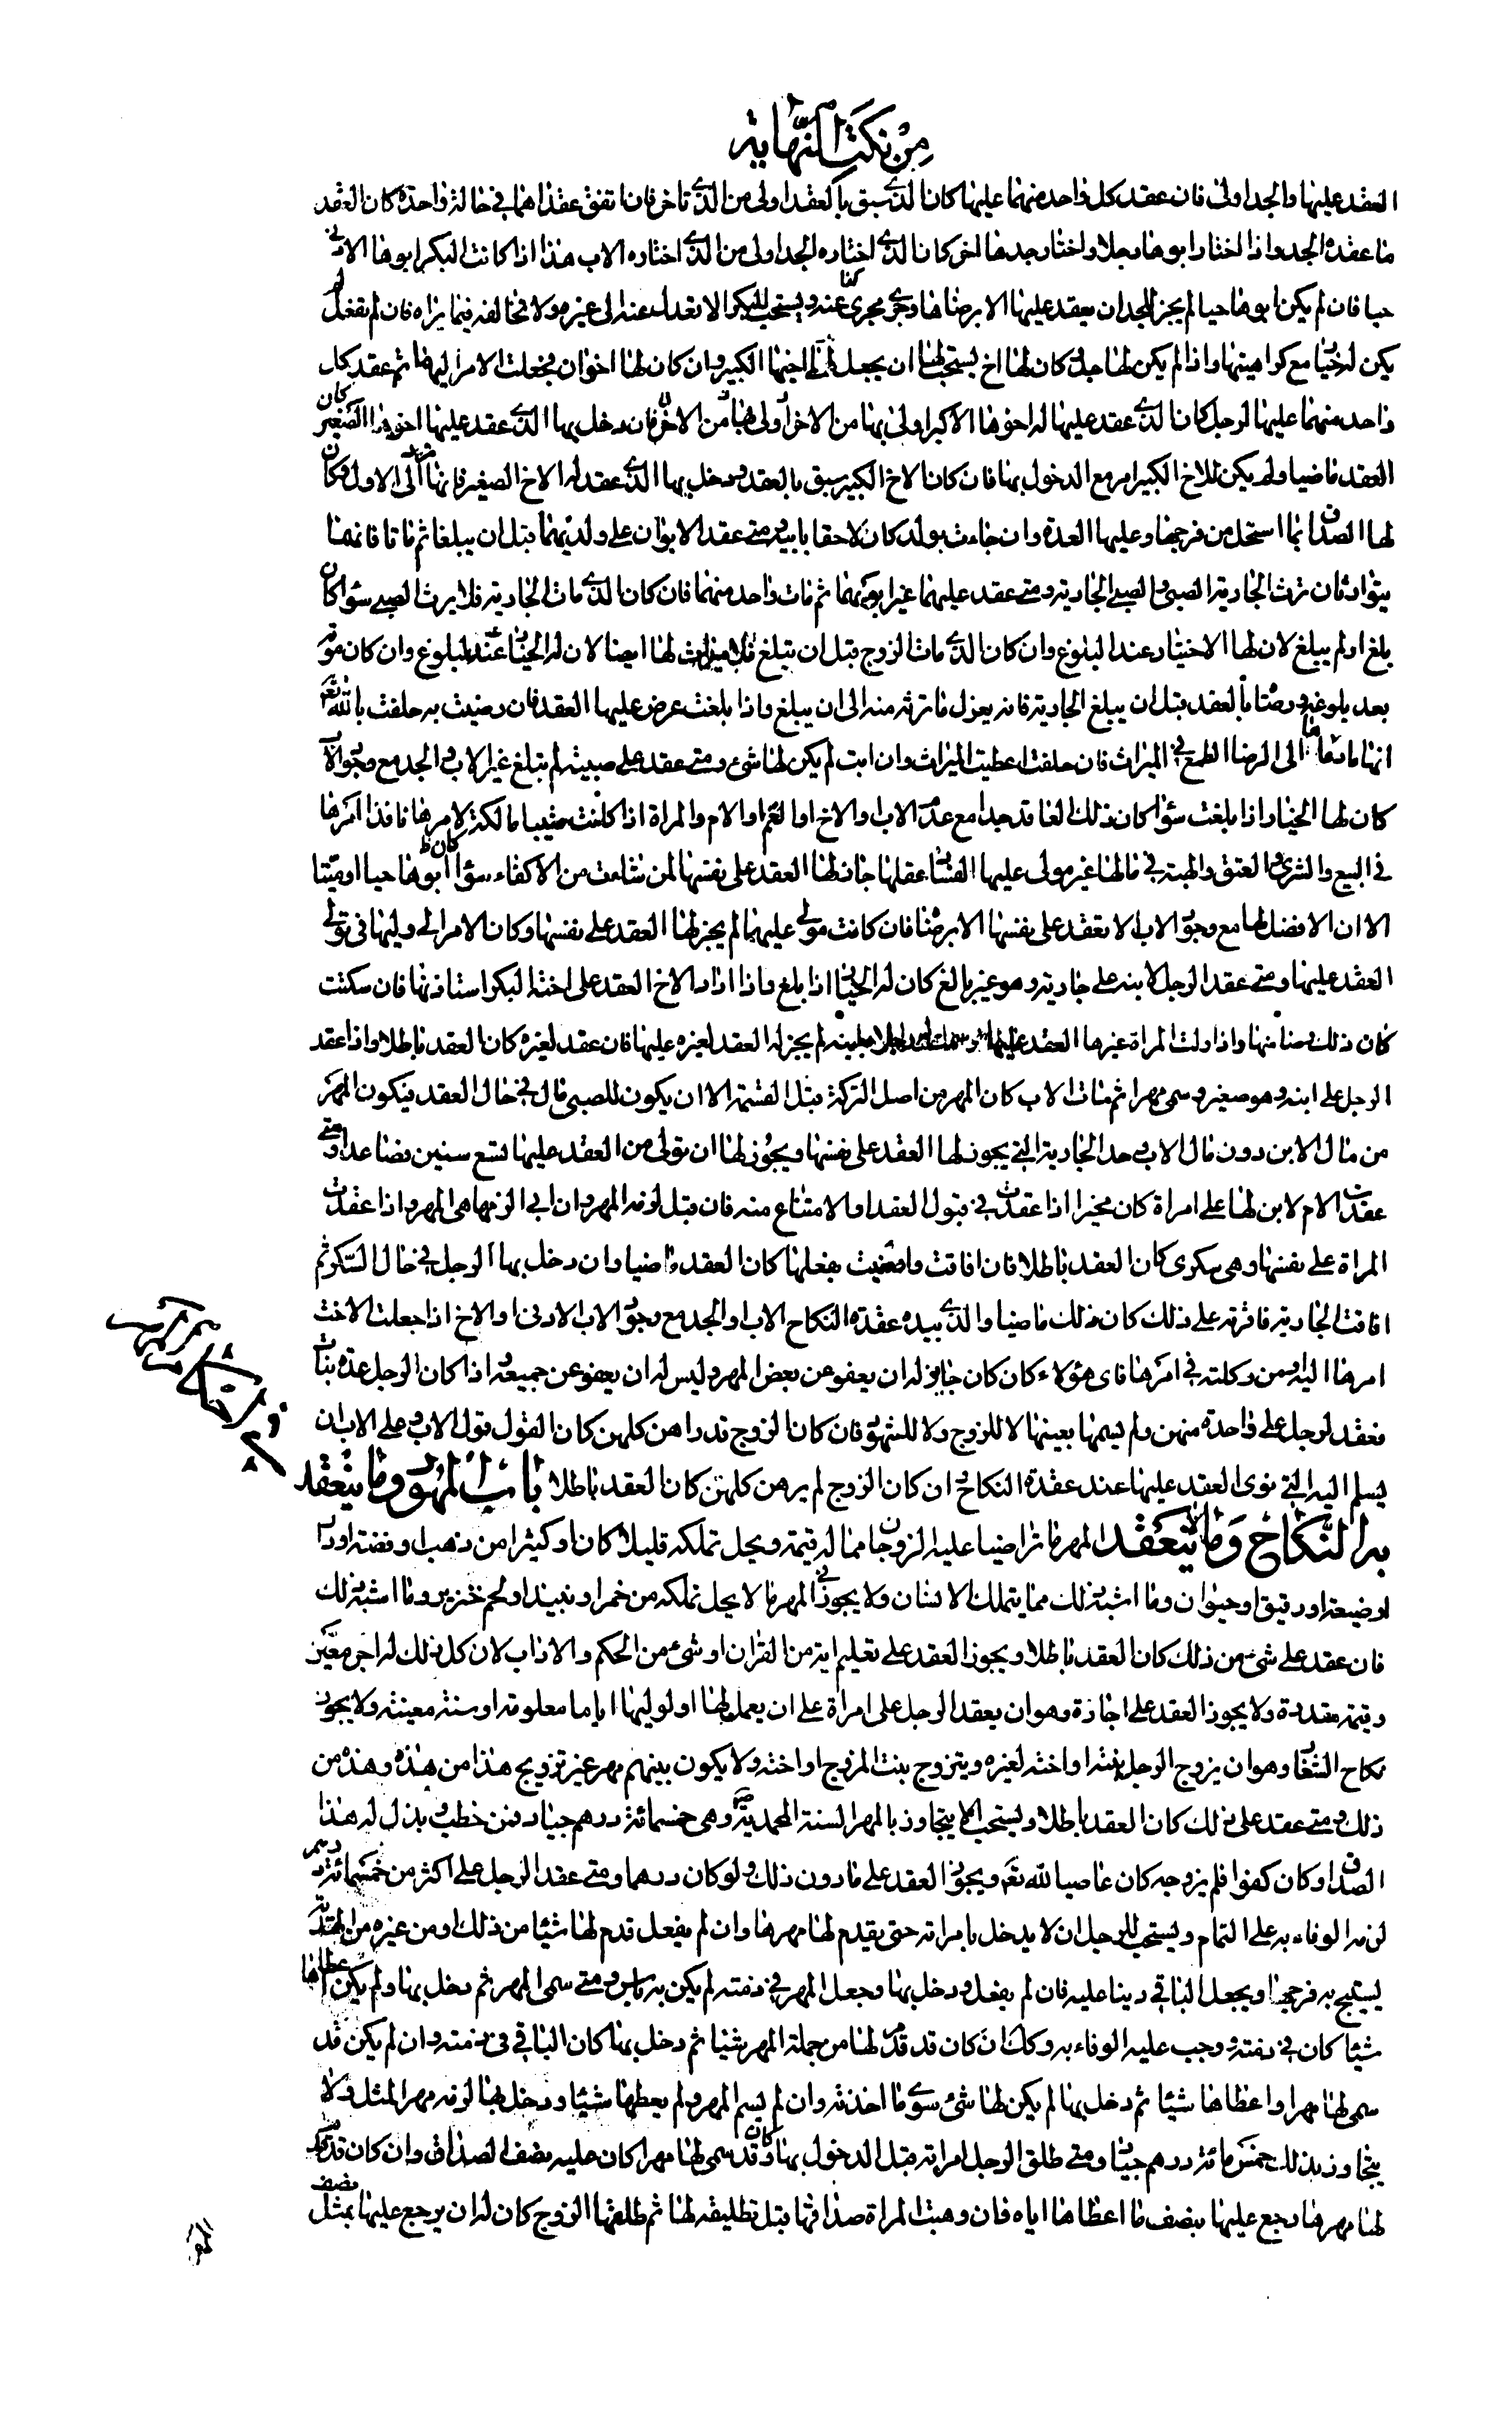 من نكت النهاية
العقد عليها والجد اولى فان عقد كل واحد منهما عليها كان الذي سبق بالعقد اولى من الذي تاخر فان اتفق عقداهما في حالة واحدة كان العقد
ما عقده الجد واذا اختار ابوها رجلا واختار جدها اخر كان الذي اختاره الجد اولى من الذي اختاره الاب هذا اذا كانت البكر ابوها الادنى
حيا فان لم يكن ابوها حيا لم يجز للجد ان يعقد عليها الا برضاها وجرى مجرى غيره ويستحب للبكر الا تعدل عنه الى غيره ولا تخالفه فيما يراه فان لم تفعل لم
يكن له خيار مع كراهيتها واذا لم يكن لها جد وكان لها اخ يستحب لها ان يجعل الامر الى اخيها الكبير وان كان لها اخوان فجعلت الامر اليهما ثم عقد كل
واحد منهما عليها لرجل كان الذي عقد عليها له اخوها الاكبر اولى بها من الاخر فان دخل بها الذي عقد عليها اخوها الصغير كان
العقد ماضيا ولم يكن للاخ الكبير امر مع الدخول بها فان كان الاخ الكبير سبق بالعقد ودخل بها الذي عقد له الاخ الصغير فانها ترد الى الاول وكان
لها الصداق بما استحل من فرجها وعليها العدة وان جاءت بولد كان لاحقا بابيه ومتى عقد الابوان على ولديهما قبل ان يبلغا ثم ماتا فانهما
يتوارثان ترث الجارية الصبي والصبي الجارية ومتى عقد عليهما غير ابويهما ثم مات واحد منهما فان كان الذي مات الجارية فلا يرث الصبي سواء كان
بلغ او لم يبلغ لان لها الاختيار عند البلوغ وان كان الذي مات الزوج قبل ان يبلغ فلا ميراث لها ايضا لان له الخيار عند البلوغ وان كان موته
بعد بلوغه ورضاه بالعقد قبل ان يبلغ الجارية فانه يعزل ما ترثه منه الى ان يبلغ واذا بلغت عرض عليها العقد فان رضيت به حلفت بالله تعالى
انها ما دعاها الى الرضا الطمع في الميراث فان حلفت اعطيت الميراث وان ابت لم يكن لها شيء ومتى عقد على صبية لم تبلغ غير الاب والجد مع وجود الاب
كان لها الخيار اذا بلغت سواء كان ذلك العاقد جدا مع عدم الاب والاخ او العم او الام والمراة اذا كانت ثيبا مالكة لامرها نافذا امرها
في البيع والشرى والعتق والهبة في مالها غير مولى عليها لفساد عقلها جاز لها العقد على نفسها لمن شاءت من الاكفاء سواء كان ابوها حيا او ميتا
الا ان الافضل لها مع وجود الاب الا تعقد على نفسها الا برضاه فان كانت مولى عليها لم يجز لها العقد على نفسها وكان الامر الى وليها في تولي
العقد عليها ومتى عقد الرجل لابنه على جارية وهو غير بالغ كان له الخيار اذا بلغ واذا اراد الاخ العقد على اخته البكر استاذنها فان سكتت
كان ذلك رضا منها واذا ولت المراة غيرها العقد عليها وسمت له رجلا بعينه لم يجز له العقد لغيره عليها فان عقد لغيره كان العقد باطلا واذا عقد
الرجل على ابنه وهو صغير وسمى مهرا ثم مات الاب كان المهر من اصل التركة قبل القسمة الا ان يكون للصبي مال في حال العقد فيكون المهر
من مال الابن دون مال الاب وحد الجارية التي يجوز لها العقد على نفسها ويجوز لها ان تولي من العقد عليها تسع سنين فصاعدا ومتى
عقدت الام لابن لها على امراة كان مخيرا اذا عقدت في قبول العقد او الامتناع منه فان قبل لزمه المهر وان ابى الزمها هي المهر واذا عقدت
المراة على نفسها وهي سكرى كان العقد باطلا فان افاقت ورضيت بفعلها كان العقد ماضيا وان دخل بها الرجل في حال السكر ثم
افاقت الجارية فاقرته على ذلك كان ذلك ماضيا والذي بيده عقدة النكاح الاب او الجد مع وجود الاب الادنى او الاخ اذا جعلت الاخت
امرها اليه او من وكلته في امرها فاي هؤلاء كان كان جايز له ان يعفو عن بعض المهر وليس له ان يعفو عن جميعه اذا كان لرجل عدة بنات
فعقد لرجل على واحدة منهن ولم يسمها بعينها لا للزوج ولا للشهود فان كان الزوج قد راهن كلهن كان القول قول الاب وعلى الاب ان
يسلم اليه التي نوى العقد عليها عند عقدة النكاح وان كان الزوج لم يرهن كلهن كان العقد باطلا باب المهور وما ينعقد
به النكاح وما لا ينعقد المهر ما تراضيا عليه الزوجان مما له قيمة ويحل تملكه قليلا كان او كثيرا من ذهب او فضة او دار
او ضيعة او رقيق او حيوان وما اشبه ذلك مما يتملك الانسان ولا يجوز في المهر ما لا يحل تملكه من خمر او نبيذ او لحم خنزير وما اشبه ذلك
فان عقد على شيء من ذلك كان العقد باطلا ويجوز العقد على تعليم اية من القران او شيء من الحكم والاداب لان كل ذلك له اجر معين
وقيمة مقدرة ولا يجوز العقد على اجارة وهو ان يعقد الرجل على امراة على ان يعمل لها او لوليها اياما معلومة او سنة معينة ولا يجوز
نكاح الشغار وهو ان يزوج الرجل بنته او اخته لغيره ويتزوج بنت المزوج او اخته ولا يكون بينهم مهر غير تزويج هذا من هذه وهذه من
ذلك ومتى عقد على ذلك كان العقد باطلا ويستحب الا يتجاوز بالمهر السنة المحمدية وهي خمسمائة درهم جياد فمن خطب وبذل له هذا
الصداق وكان كفوا فلم يزوجه كان عاصيا لله تعالى ويجوز العقد على ما دون ذلك ولو كان درهما ومتى عقد الرجل على اكثر من خمسمائة درهم
لزمه الوفاء به على التمام ويستحب للرجل ان لا يدخل بامراته حتى يقدم لها مهرها وان لم يفعل قدم لها شيئا من ذلك او من غيره من الهدية
يستبيح به فرجها ويجعل الباقي دينا عليه فان لم يفعل ودخل بها وجعل المهر في ذمته لم يكن به باس ومتى سمى المهر ثم دخل بها ولم يكن اعطاها
شيئا كان في ذمته ووجب عليه الوفاء به وكذلك ان كان قد قدم لها من جملة المهر شيئا ثم دخل بها كان الباقي في ذمته وان لم يكن قد
سمى لها مهرا واعطاها شيئا ثم دخل بها لم يكن لها شيء سوى ما اخذته وان لم يسم المهر ولم يعطها شيئا ودخل بها لزمه مهر المثل ولا
يتجاوز بذلك خمسمائة درهم جياد ومتى طلق الرجل امراته قبل الدخول بها وكان قد سمى لها مهرا كان عليه نصف الصداق وان كان قد قدم
لها مهرها رجع عليها بنصف ما اعطاها اياه فان وهبت المراة صداقها قبل تطليقه لها ثم طلقها الزوج كان له ان يرجع عليها بمثل نصف